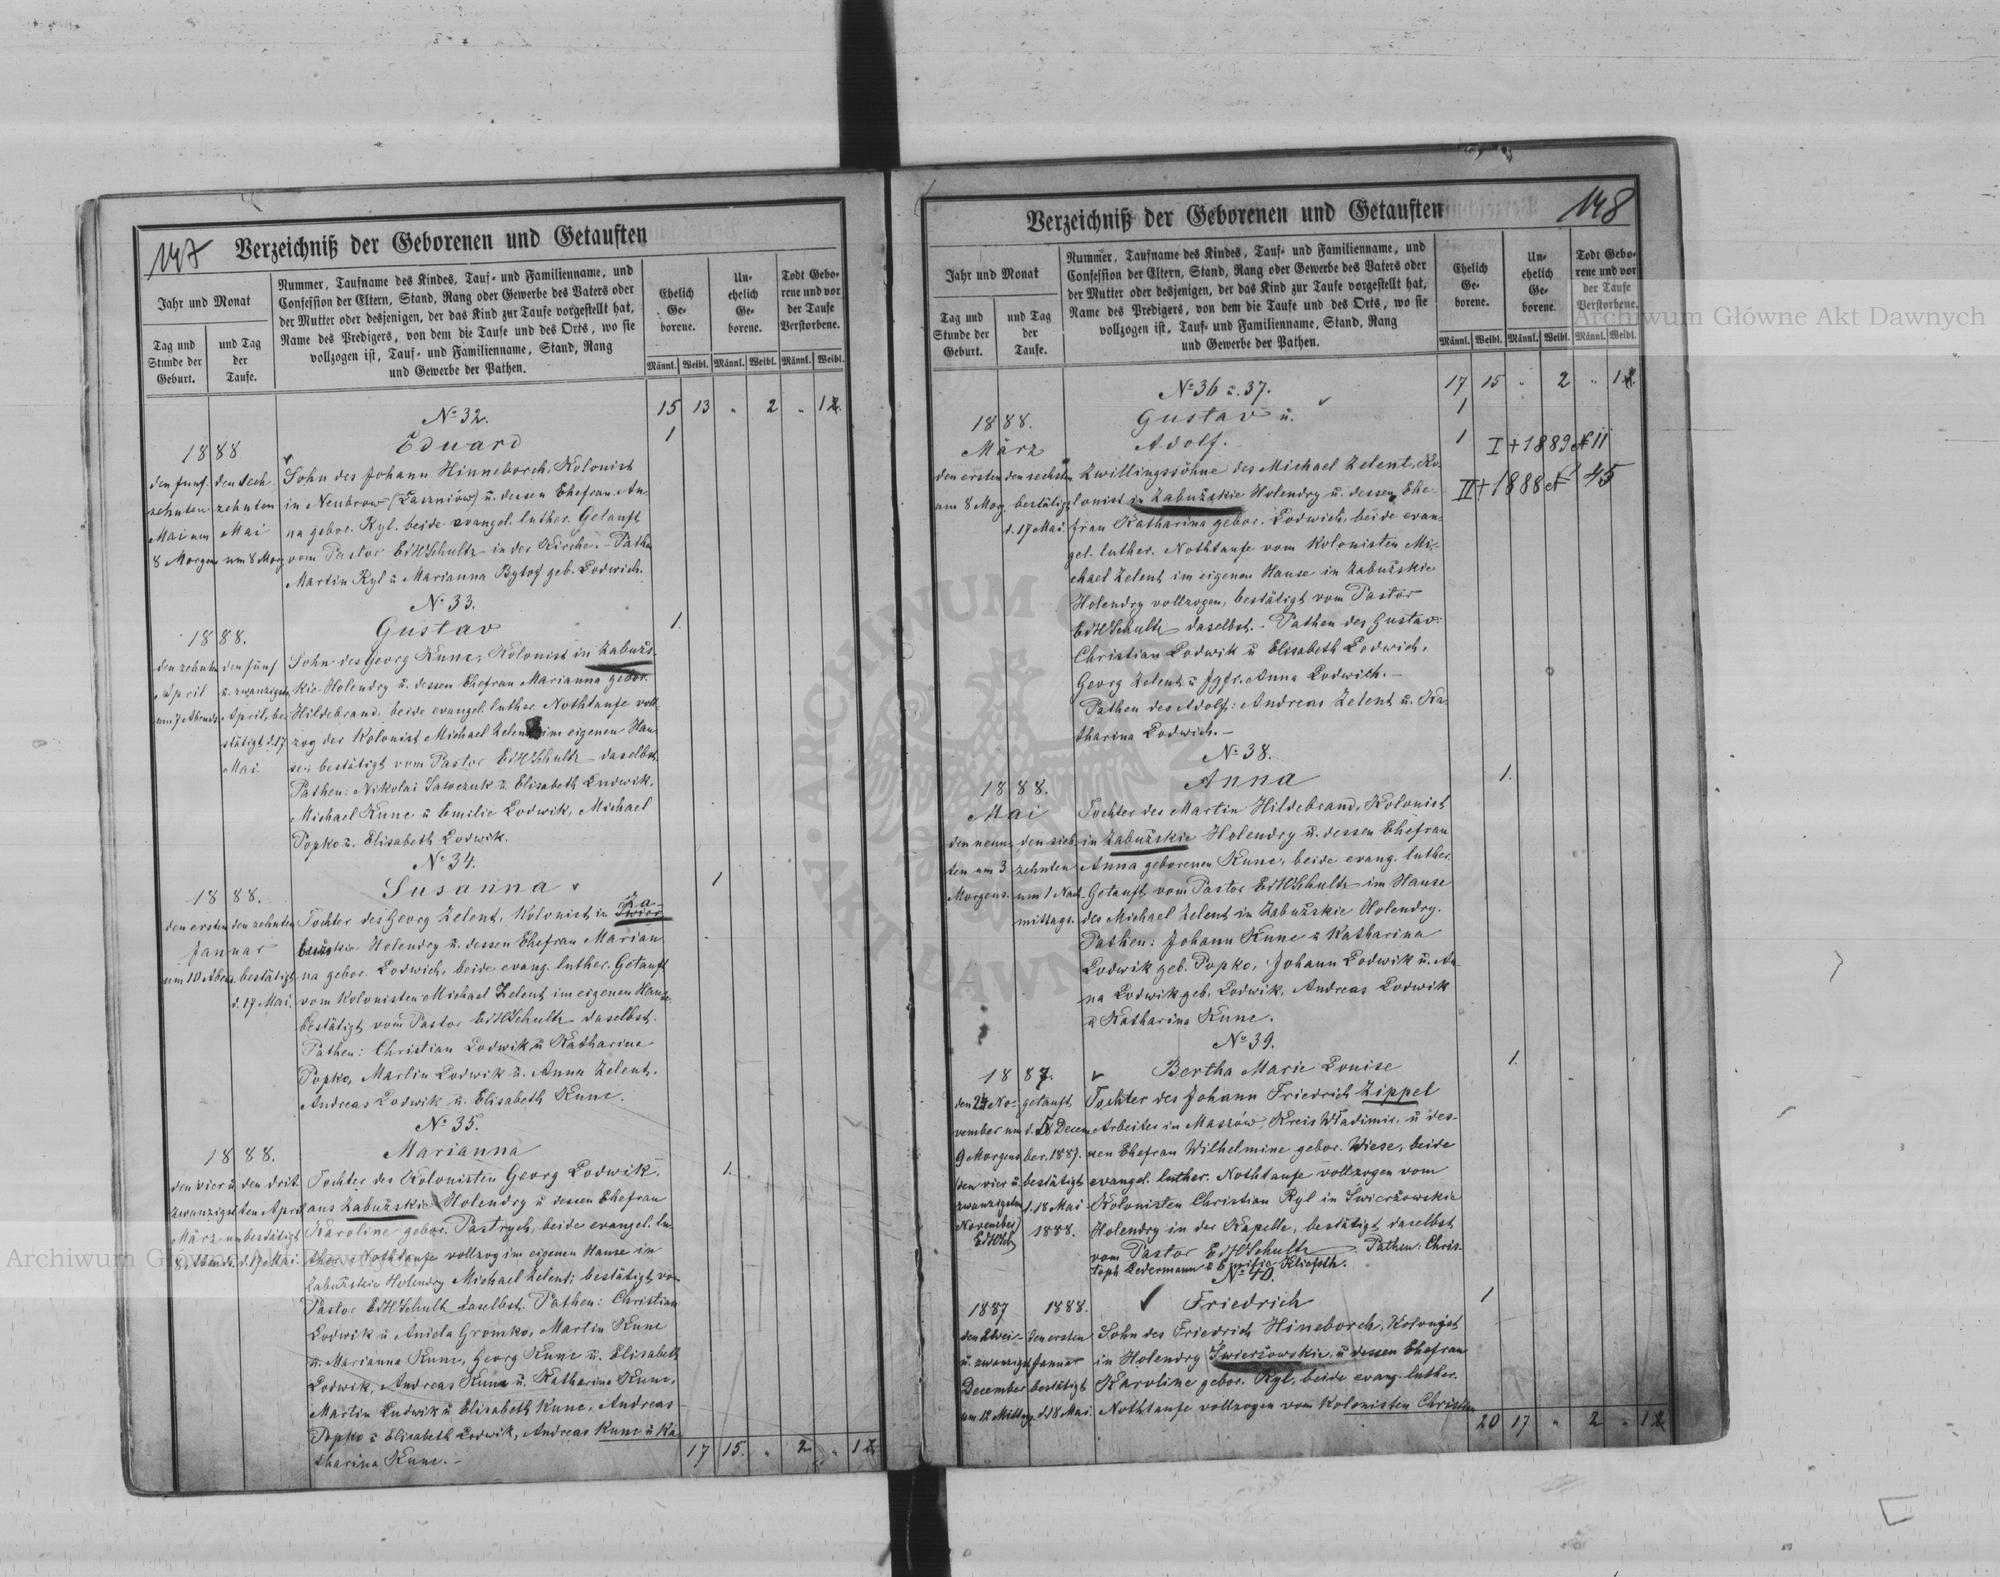 147
Verzeichniß der Geborenen und Getauften
Jahr und Monat
Tag und Stunde der Geburt.
und Tag der Taufe.
Nummer, Taufname des Kindes, Tauf- und Familienname, und
Confession der Eltern, Stand, Rang oder Gewerbe des Vaters oder
der Mutter oder desjenigen, der das Kind zur Taufe vorgestellt hat,
Name des Predigers, von dem die Taufe und des Orts, wo sie
vollzogen ist, Tauf- und Familienname, Stand, Rang
und Gewerbe der Pathen.
Ehelich Ge- borene.
Un- ehelich Ge- borene.
Todt Gebo- rene und vor der Taufe Verstorbene.
Männl. Weibl. Männl. Weibl. Männl. Weibl.
15 13 " 2 "
№ 32.
1888
den fünf-
zehnten
Mai um
8 Morgens
den sech-
zehnten
Mai
um 8 Morg.
Eduard
1
Sohn des Johann Hinneborch, Kolonist
in Neubrow (Zaszniów) u. dessen Ehefrau An-
na gebor. Ryl. beide evangel. luther. Getauft
vom Pastor EdHSchultz in der Kirche. - Pathen
Martin Ryl u Marianna Bytof geb. Lodwich.
№ 33.
1888.
den zehnten
April
um 7 Abends
den fünf
u. zwanzigsten
April, be-
stätigt d. 17
Mai.
Gustav
1.
Sohn des Georg Kunc, Kolonist in Zabużs-
kie Holendry u. dessen Ehefrau Marianna gebor.
Hildebrand, beide evangel. luther. Nothtaufe voll-
zog der Kolonist Michael Zelent im eigenen Hau-
se; bestätigt vom Pastor EdHSchultz daselbst.
Pathen: Nikolai Sawczuk u Elisabeth Ludwik,
Michael Kunc u Emilie Lodwik, Michael
Popko u. Elisabeth Lodwik.
№ 34.
1888.
den ersten
Januar
um 10 Abens.
den zehnten
bestätigt
d. 17 Mai.
Susanna
1
Tochter des Georg Zelent, Kolonist in Za-
bużskie Holendry u. dessen Ehefrau Marian-
na gebor. Lodwich, beide evang. luther. Getauft
vom Kolonisten Michael Zelent im eigenen Hause,
bestätigt vom Pastor EdHSchultz daselbst.
Pathen: Christian Lodwik u Katharina
Popko, Martin Lodwik u. Anna Zelent,
Andreas Lodwik u. Elisabeth Kunc.
№ 35.
1888.
den vier u.
zwanzigst.
März um
8 Abends
den drit-
ten April
bestätigt
d. 17 Mai.
Marianna
1.
Tochter des Kolonisten Georg Lodwik.
aus Zabużskie Holendry u dessen Ehefrau
Karoline gebor. Pastrych, beide evangel. lu-
ther. Nothtaufe vollzog im eigenen Hause in
Zabużskie Holendry Michael Zelent; bestätigt vom
Pastor EdHSchultz daselbst. Pathen: Christian
Lodwik u Aniela Gromko, Martin Kunc
u. Marianna Kunc, Georg Kunc u. Elisabeth
Lodwik, Andreas Kunc u. Katharina Kunc,
Martin Ludwik u Elisabeth Kunc, Andreas
Popko u Elisabeth Lodwik, Andreas Kunc u Ka-
tharina Kunc. -
17 15. " 2 "
148
Verzeichniß der Geborenen und Getauften
Jahr und Monat
Tag und Stunde der Geburt.
und Tag der Taufe.
Nummer, Taufname des Kindes, Tauf- und Familienname, und
Confession der Eltern, Stand, Rang oder Gewerbe des Vaters oder
der Mutter oder desjenigen, der das Kind zur Taufe vorgestellt hat,
Name des Predigers, von dem die Taufe und des Orts, wo sie
vollzogen ist, Tauf- und Familienname, Stand, Rang
und Gewerbe der Pathen.
Ehelich Ge- borene.
Un- ehelich Ge- borene.
Todt Gebo- rene und vor der Taufe Verstorbene.
Männl. Weibl. Männl. Weibl. Männl. Weibl.
17 15 " 2 "
№ 36 u. 37.
1888.
März
den ersten
um 8 Morg.
den sechsten
bestätigt
d. 17 Mai.
Gustav u.
1
Adolf.
1
I + 1889 № 11
II + 1888 № 45
Zwillingssöhne des Michael Zelent, Ko-
lonist in Zabużskie Holendry u. dessen Ehe-
frau Katharina gebor. Lodwich, beide evan-
gel. luther. Nothtaufe vom Kolonisten Mi-
chael Zelent im eigenen Hause in Zabużskie
Holendry vollzogen, bestätigt vom Pastor
EdHSchultz daselbst. - Pathen des Gustav:
Christian Lodwik u Elisabeth Lodwich,
Georg Zelent u Jgfr. Anna Lodwich. -
Pathen des Adolf: Andreas Zelent u. Ka-
tharina Lodwich. -
№ 38.
1888.
Mai
den neun-
ten um 3
Morgens.
den sieb-
zehnten
um 1 Nach-
mittags.
Anna
1.
Tochter des Martin Hildebrand, Kolonist
in Zabużskie Holendry u. dessen Ehefrau
Anna geborenen Kunc, beide evang. luther.
Getauft vom Pastor EdHSchultz im Hause
des Michael Zelent in Zabużskie Holendry.
Pathen: Johann Kunc u Katharina
Lodwik geb. Popko, Johann Lodwik u. An-
na Lodwik geb. Lodwik, Andreas Lodwik
u Katharina Kunc.
№ 39.
1887.
den 24 No-
vember um
9 Morgens
(den vier u.
zwanzigsten
November)
EdHSch
getauft
d. Decem-
ber. 1887.
bestätigt
d. 18 Mai
1888.
Bertha Marie Louise
1.
Tochter des Johann Friedrich Zippel
Arbeiter in Maszów, Kreis Wladimir, u des-
sen Ehefrau Wilhelmine gebor. Wiese, beide
evangel. luther. Nothtaufe vollzogen vom
Kolonisten Christian Ryl in Swierżowskie
Holendry in der Kapelle, bestätigt daselbst
vom Pastor EdHSchultz. Pathen: Chris-
toph Ledermann u Kliefoth.
№ 40.
1887
den zwei-
u. zwanzigst
December
um 12 Mittag.
1888.
den ersten
Januar
bestätigt
d 18 Mai.
Friedrich
1
Sohn des Friedrich Hineborch, Kolonist
in Holendry Swierżowskie, u dessen Ehefrau
Karoline gebor. Ryl, beide evang. luther.
Nothtaufe vollzogen vom Kolonisten Christian
20 17 " 2 "
Archiwum Główne Akt Dawnych
Archiwum Główne Akt Dawnych